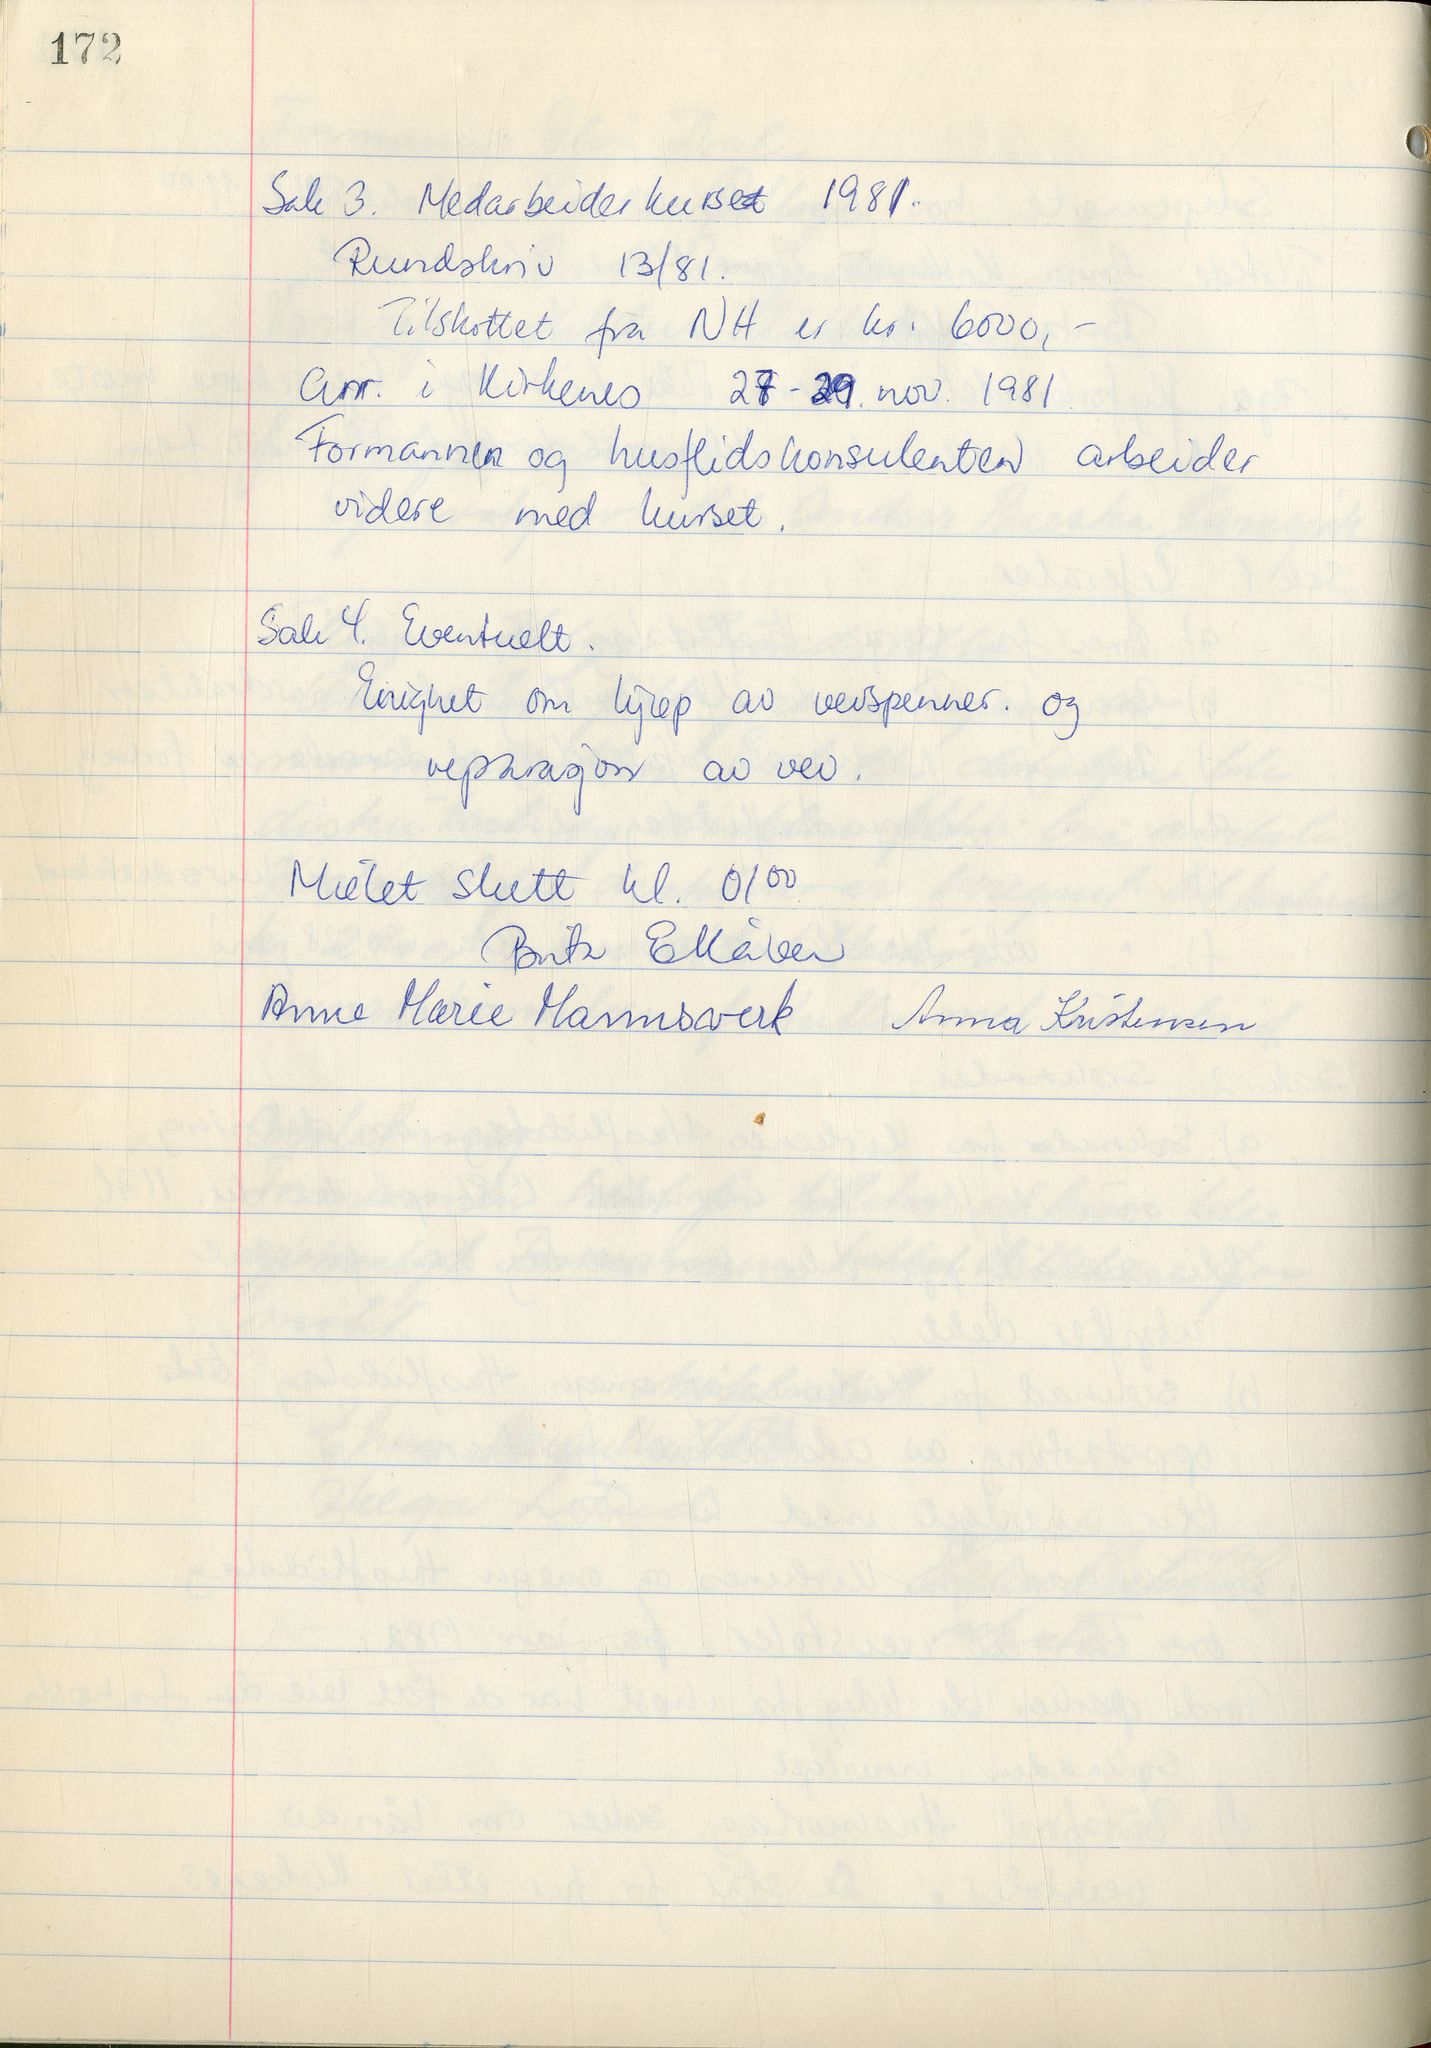 172
Sak 3. Medarbeiderkurset 1981.
Rundskriv 13/81.
Tilskottet fra NH er kr. 6000,-
Arr. i Kirkenes 27-29. nov. 1981
Formannen og husflidskonsulenten arbeider
videre med kurset.
Sak 4. Eventuelt.
Enighet om kjøp av vevspenner. og
reparasjon av vev.
Møtet slutt kl. 0100
Brita E Kåven
Anne Marie Mannsverk Anna Kristensen